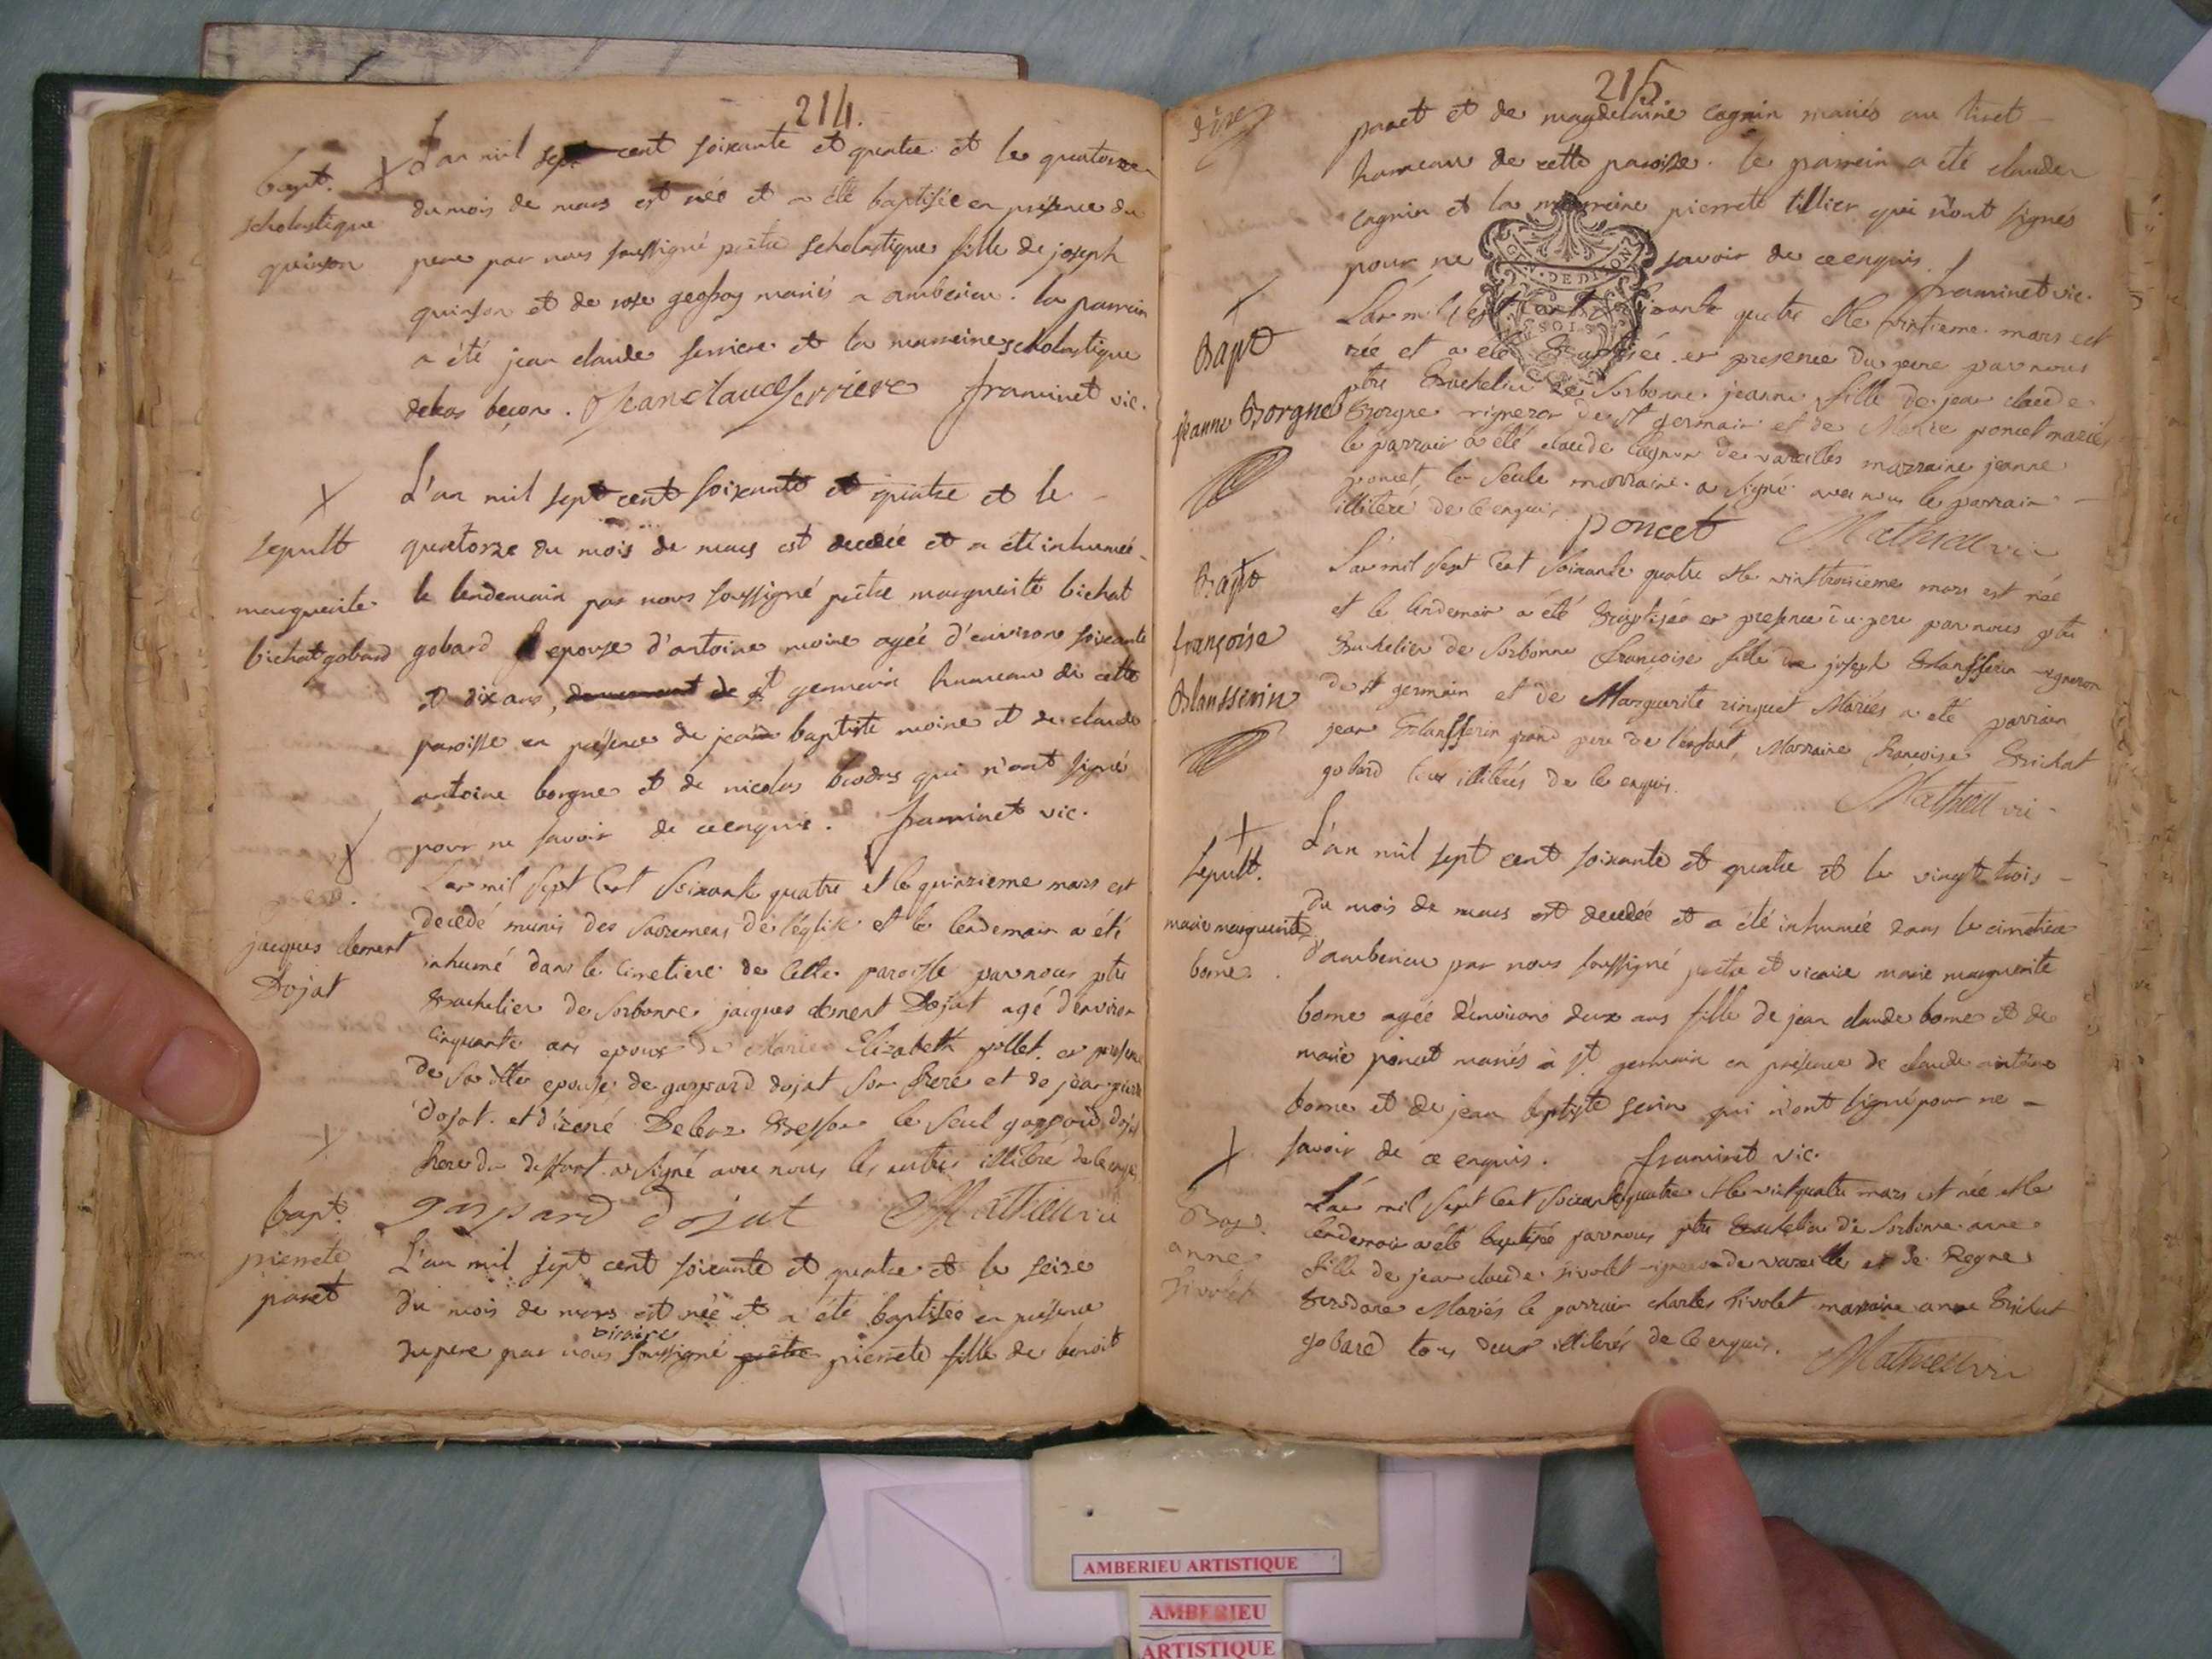 214.
bapt.
scholastique
quinson
L'an mil sept cent soixante et quatre et le quatorze
du mois de mars est née et a été baptisée en présence du
pere par nous soussigné prêtre scholastique fille de joseph
quinson et de rose mariés a amberieu. le parrain
a été jean claude serriere et la marreine scholastique
jean claude serriere framinet vic.
sepult
marguerite
bichat gobard
L'an mil sept cent soixante et quatre et le
quatorze du mois de mars est decedée et a été inhumée
le lendemain par nous soussigné prêtre marguerite bichat
gobard epouse d'antoine moine agée d'environ soixante
et dix ans, st germain hameau de cette
paroisse en présence de jean baptiste moine et de claude
antoine borgne et de nicolas qui n'ont signé
pour ne savoir de ce enquis. framinet vic.
jacques clement
Dojat
L'an mil sept cent soixante quatre et le quinzieme mars est
decedé munis des sacremens de l'église et le lendemain a été
inhumé dans le cimetiere de cette paroisse par nous ptre
Bachelier de sorbonne jacques clement Dojat agé d'environ
cinquante ans epoux de Marie Elizabeth pollet. en presence
de sa ditte epouse, de gaspard dojat son frere et de jean pierre
dojat. et le seul gaspard dojat
frere du deffunt a signé avec nous les autres illiteré de ce enquis
gaspard dojat Mathieu vic
bapt.
pierrete
panet
L'an mil sept cent soixante et quatre et le seize
du mois de mars est née et a été baptisée en présence
vicaire
du pere par nous soussigné prêtre pierrete fille de benoit
215
panet et de magdelaine cagnin mariés au tiret
hameau de cette paroisse. le parrein a été claude
cagnin et la marreine pierrete tillier qui n'ont signés
pour ne savoir de ce enquis.
framinet vic.
GEN. DE DIJON
SOLS
Bapt
jeanne Borgne
L'an mil sept cent soixante quatre et le vintieme mars est
née et a été Baptisée en presence du pere par nous
ptre Bachelier de sorbonne jeanne fille de jean claude
Borgne vigneron de st germain et de Marie poncet mariés
le parrain a été claude cagnin de vareilles marraine jeanne
poncet, la seule marraine a signé avec nous le parrain
illiteré de ce enquis
poncet Mathieu vic
Bapt
françoise
Blansserin
L'an mil sept cent soixante quatre et le vint troisieme mars est née
et le lendemain a été Baptisée en presence du pere par nous ptre
Bachelier de sorbonne françoise fille de joseph Blansserin vigneron
de st germain et de Marguerite ringuet Mariés a été parrain
jean Blansserin grand pere de l'enfant, Marraine françoise Bichat
gobard tous illiterés de ce enquis.
Mathieu vic
sepult.
marie marguerite
borne.
L'an mil sept cent soixante et quatre et le vingt trois
du mois de mars est decedée et a été inhumée dans le cimetiere
d'amberieu par nous soussigné prêtre et vicaire marie marguerite
borne agée d'environ deux ans fille de jean claude borne et de
marie poncet mariés à st. germain en présence de claude antoine
borne et de jean baptiste serin qui n'ont signé pour ne
savoir de ce enquis. framinet vic.
Bap.
anne
Tivolet
L'an mil sept cent soixante quatre et le vint quatre mars est née et le
lendemain a été baptisée par nous ptre Bachelier de sorbonne anne
fille de jean claude Tivolet vigneron de vareille et de Regne
Mariés le parrain charles Tivolet marraine anne Bichat
gobard tous deux illiterés de ce enquis.
Mathieu vic
AMBERIEU ARTISTIQUE
AMBERIEU
ARTISTIQUE